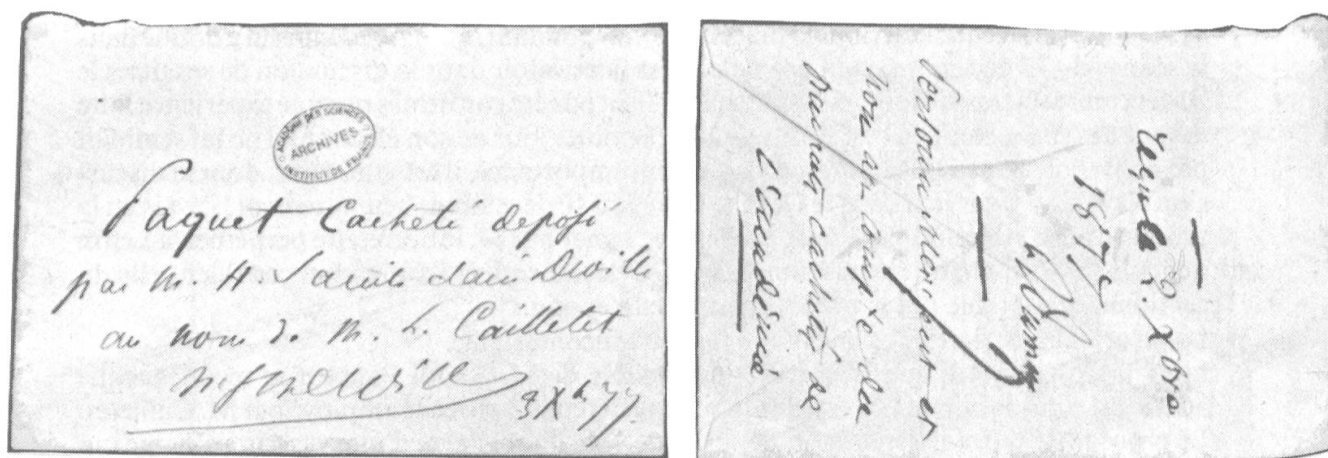 ACADÉMIE DES SCIENCES
ARCHIVES
INSTITUT DE FRANCE
Paquet Cacheté deposé
par M. H. Sainte Claire Deville
au nom de M. L. Cailletet
3 Xbre 77.
reçu le 2. Xbre
1877
Dumas
Personnellement et
non au Compte des
paquets cachetés de
l'académie